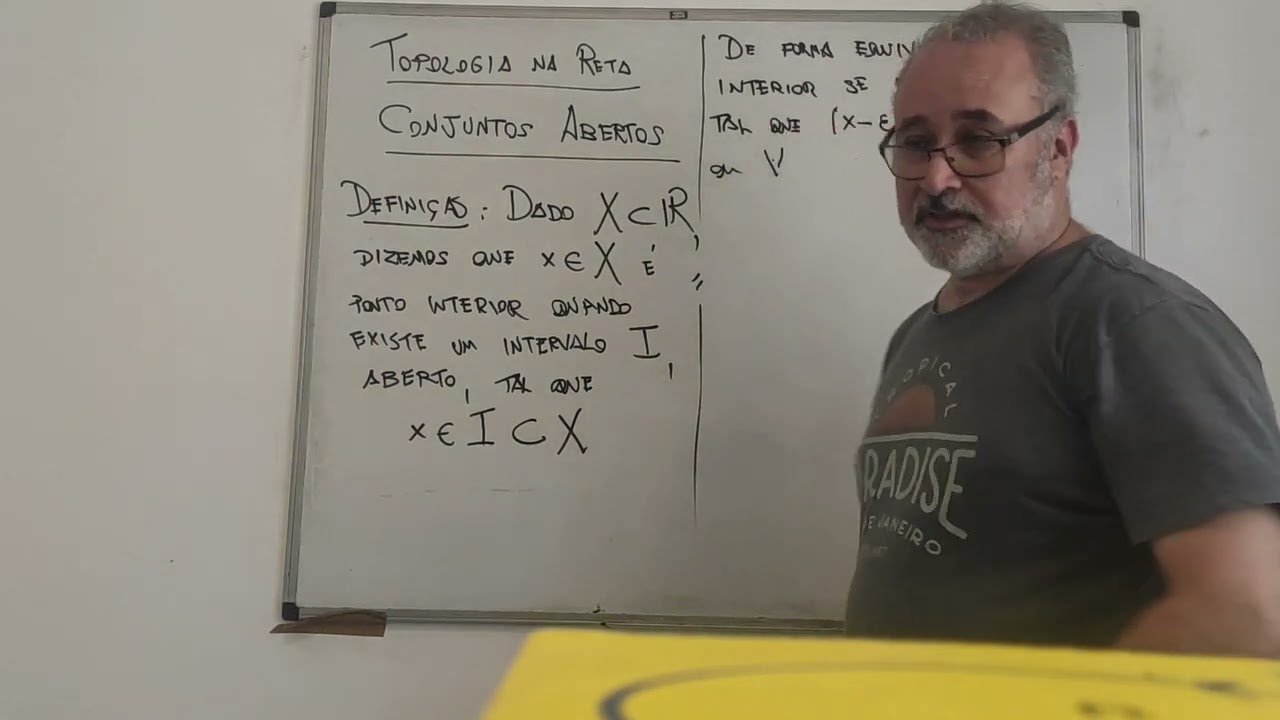 TOPOLOGIA NA RETA
CONJUNTOS ABERTOS
DEFINIÇÃO: DADO X⊂IR,
DIZEMOS QUE x∈X É
PONTO INTERIOR QUANDO
EXISTE UM INTERVALO I,
ABERTO, TAL QUE
x∈I⊂X
DE FORMA
INTERIOR SE
TAL QUE (x-ε
OU
TROPICAL
RADISE
E JANEIRO